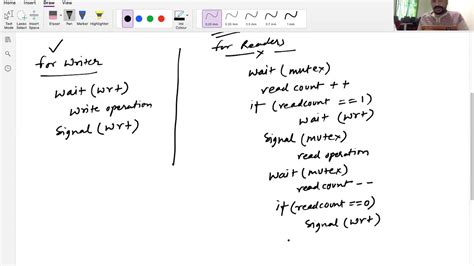 Home Insert Draw View
Text Mode
Lasso Select
Insert Space
Eraser
Pen
Marker
Highlighter
0.35 mm
0.5 mm
for Writer
wait (wrt)
Write operation
Signal (wrt)
for Readers
wait (mutex)
read count ++
if (readcount == 1)
wait (wrt)
Signal (mutex)
read operation
wait (mutex)
readcount --
if (readcount ==0)
Signal (wrt)